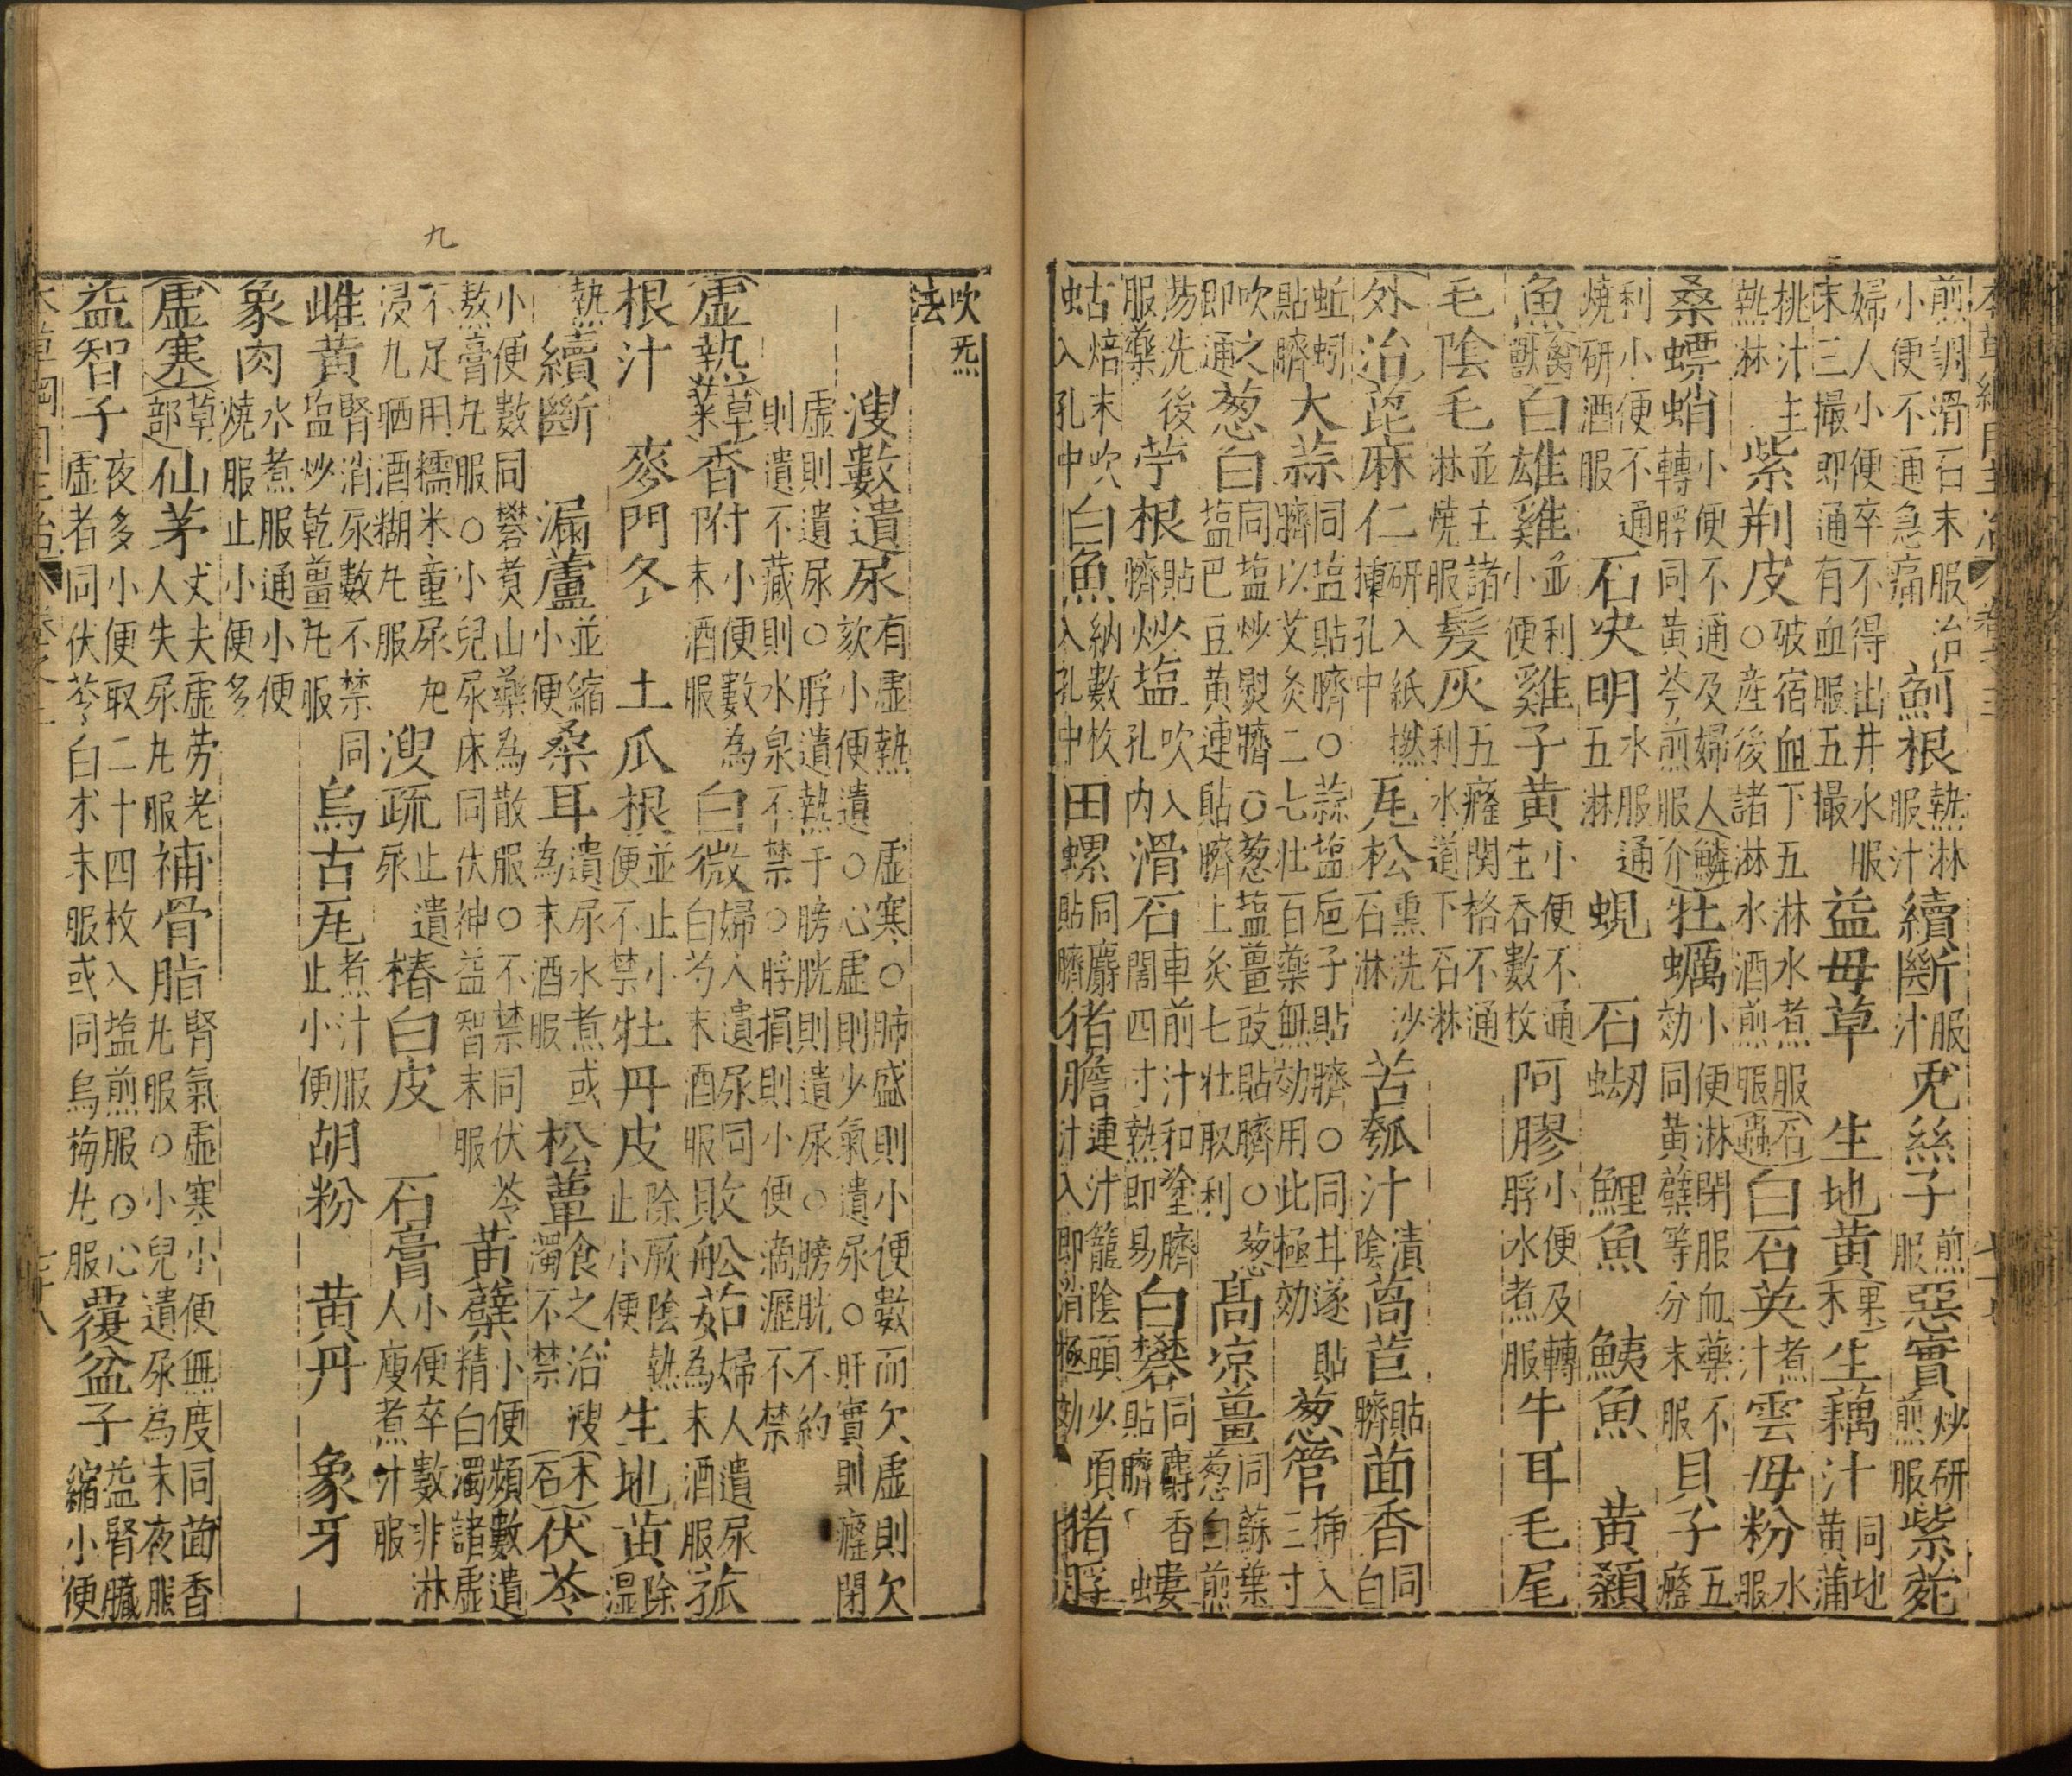 本草綱目主治 卷之三 七十七
煎調滑石末服治小便不通急痛 薊根 熱淋服汁 續斷 服汁 兔絲子 煎服 惡實 炒研煎服 紫菀
婦人小便卒不得出井水服末三撮即通有血服五撮 益母草 生地黃 果木 生藕汁 同地黃蒲
桃汁主熱淋 紫荆皮 破宿血下五淋水煮服○產後諸淋水酒煎服 石蟲 白石英 煮汁 雲母粉 水服
桑螵蛸 小便不通及婦人轉脬同黃芩煎服 鱗介 牡蠣 小便淋閉服血藥不効同黃蘗等分末服 貝子 五癃
利小便不通燒研酒服 石决明 水服通五淋 蜆 石蚴 鯉魚 鮧魚 黃顙
魚 禽獸 白雄雞 並利小便 雞子黃 小便不通生吞數枚 阿膠 小便及轉脬水煮服 牛耳毛尾
毛陰毛 並主諸淋燒服 髮灰 五癃関格不通利水道下石淋
外治 蓖麻仁 研入紙撚挿孔中 瓦松 熏洗沙石淋 苦瓠汁 漬陰 萵苣 貼臍 茴香 同白
蚯蚓貼臍 大蒜 同塩貼臍○蒜塩巵子貼臍○同甘遂貼臍以艾灸二七壯百藥無効用此極効 葱管 挿入三寸
吹之即通 葱白 同塩炒熨臍○葱塩薑豉貼臍○葱塩巴豆黃連貼臍上灸七壯取利 高凉薑 同蘇葉葱白煎
湯洗後服藥 苧根 貼臍 炒塩 吹入孔內 滑石 車前汁和塗臍闊四寸熱即易 白礬 同麝香貼臍 螻
蛄 焙末吹入孔中 白魚 納數枚入孔中 田螺 同麝貼臍 猪膽 連汁籠陰頭少頃汁入即消極効 猪脬
吹法 旡
溲數遺尿 有虛熱虛寒○肺盛則小便數而欠虛則欠欬小便遺○心虛則少氣遺尿○肝實則癃閉
虛則遺尿○脬遺熱于膀胱則遺尿○膀胱不約則遺不藏則水泉不禁○脬損則小便滴瀝不禁
虛熱 草菜 香附 小便數為末酒服 白微 婦人遺尿同白芍末酒服 敗船茹 婦人遺尿為末酒服 菰
根汁 麥門冬 土瓜根 並止小便不禁 牡丹皮 除厥陰熱止小便 生地黃 除湿
熱 續斷 漏蘆 並縮小便 桑耳 遺尿水煮或為末酒服 松蕈 食之治溲濁不禁 木石 伏苓
小便數同礬煑山藥為散服○不禁同伏苓熬膏丸服○小兒尿床同伏神益智末服 黃蘗 小便頻數遺精白濁諸虛
九
不足用糯米童尿浸九晒酒糊丸服 溲疏 止遺尿 椿白皮 石膏 小便卒數非淋人瘦煮汁服
雌黃 腎消尿數不禁同塩炒乾薑丸服 烏古瓦 煮汁服止小便 胡粉 黃丹 象牙
象肉 水煮服通小便燒服止小便多
虛寒 草部 仙茅 丈夫虛勞老人失尿丸服 補骨脂 腎氣虛寒小便無度同茴香丸服○小兒遺尿為末夜服
益智子 夜多小便取二十四枚入塩煎服○心虛者同伏苓白朮末服或同烏梅丸服 覆盆子 益腎臟縮小便
本草綱目主治 卷之三 七十八